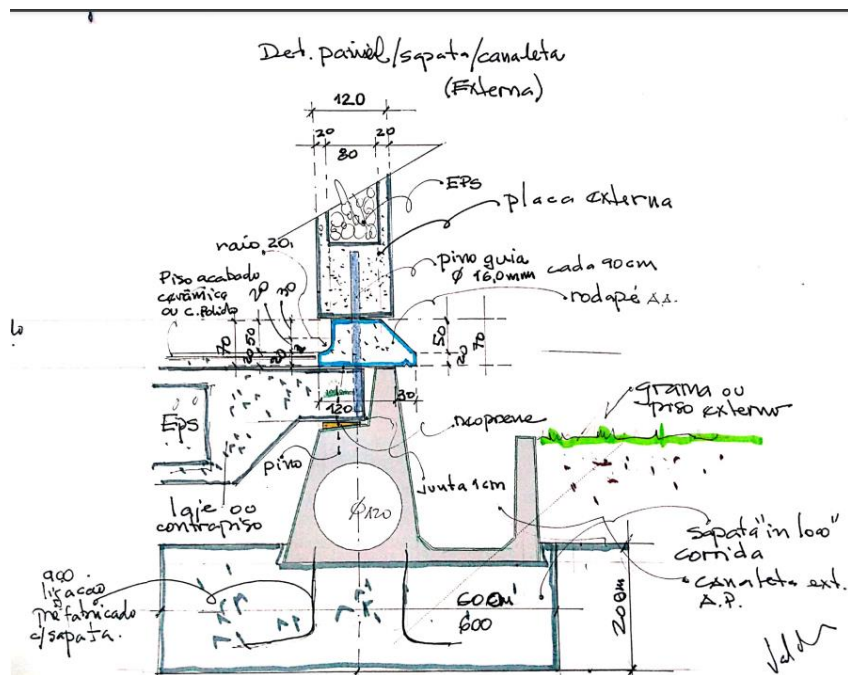 Det. painel/sapata/canaleta
(Externa)
120
20
20
80
EPS
placa externa
raio 20
pino guia
Ø 16,0mm cada 90cm
Piso acabado
cerâmica
ou c. Polido
rodapé A.A.
lo
70
50
20
20
50
20
70
120
30
grama ou
piso externo
Eps
neoprene
pino
junta 1cm
laje ou
contrapiso
Ø120
sapata "in loco"
corrida
canaleta ext.
A.P.
aço
ligação
pré fabricado
c/sapata.
60cm
600
20cm